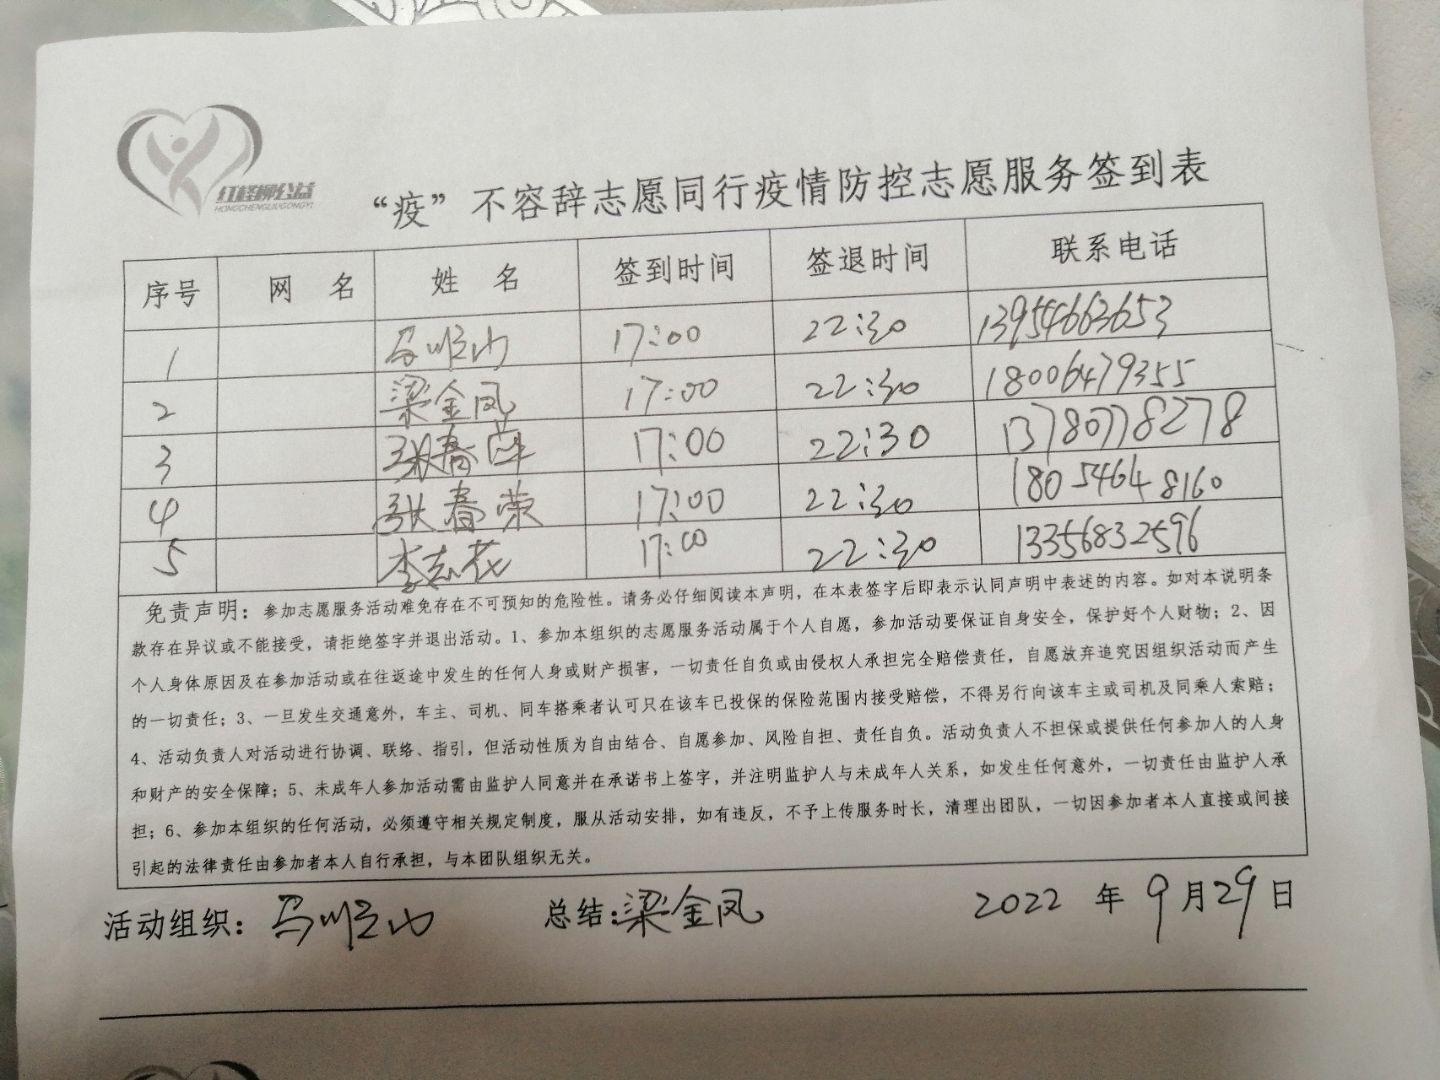 红柽柳公益
HONGCHENGLIUGONGYI
“疫”不容辞志愿同行疫情防控志愿服务签到表
序号 网 名 姓 名 签到时间 签退时间 联系电话
1 马顺山 17:00 22:30 13954663653
2 梁金凤 17:00 22:30 18006479355
3 张春萍 17:00 22:30 13780778278
4 张春荣 17:00 22:30 18054648160
5 李志花 17:00 22:30 13356832596
免责声明：参加志愿服务活动难免存在不可预知的危险性。请务必仔细阅读本声明，在本表签字后即表示认同声明中表述的内容。如对本说明条
款存在异议或不能接受，请拒绝签字并退出活动。1、参加本组织的志愿服务活动属于个人自愿，参加活动要保证自身安全，保护好个人财物；2、因
个人身体原因及在参加活动或在往返途中发生的任何人身或财产损害，一切责任自负或由侵权人承担完全赔偿责任，自愿放弃追究因组织活动而产生
的一切责任；3、一旦发生交通意外，车主、司机、同车搭乘者认可只在该车已投保的保险范围内接受赔偿，不得另行向该车主或司机及同乘人索赔；
4、活动负责人对活动进行协调、联络、指引，但活动性质为自由结合、自愿参加、风险自担、责任自负。活动负责人不担保或提供任何参加人的人身
和财产的安全保障；5、未成年人参加活动需由监护人同意并在承诺书上签字，并注明监护人与未成年人关系，如发生任何意外，一切责任由监护人承
担；6、参加本组织的任何活动，必须遵守相关规定制度，服从活动安排，如有违反，不予上传服务时长，清理出团队，一切因参加者本人直接或间接
引起的法律责任由参加者本人自行承担，与本团队组织无关。
活动组织：马顺山 总结：梁金凤 2022 年 9 月 29 日